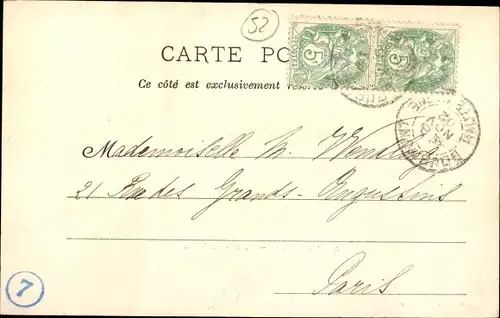 52
CARTE PO
5 5
Ce côté est exclusivement réservé
Mademoiselle M.
21 Rue des Grands-Augustins
Paris
7